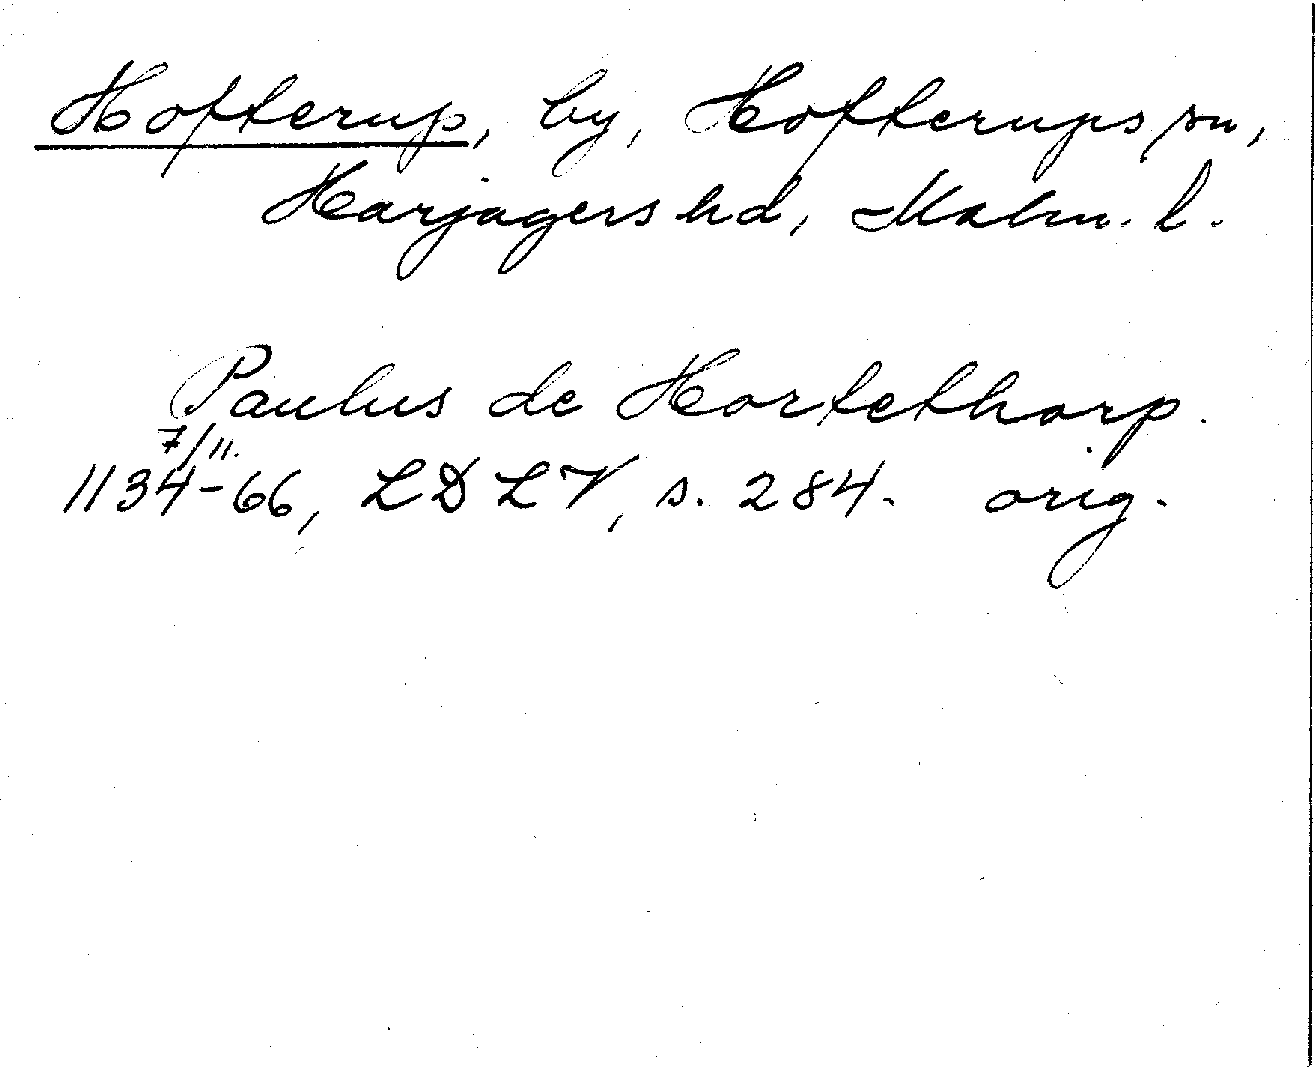 Hofterup, by, Hofterups sn,
Harjagers hd, Malm. l.
Paulus de Hortethorp.
7/11.
1134-66, LDLV, s. 284. orig.